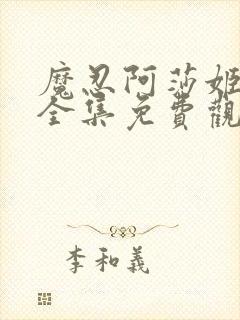 魔忍阿莎姬
全集免費觀
李和義